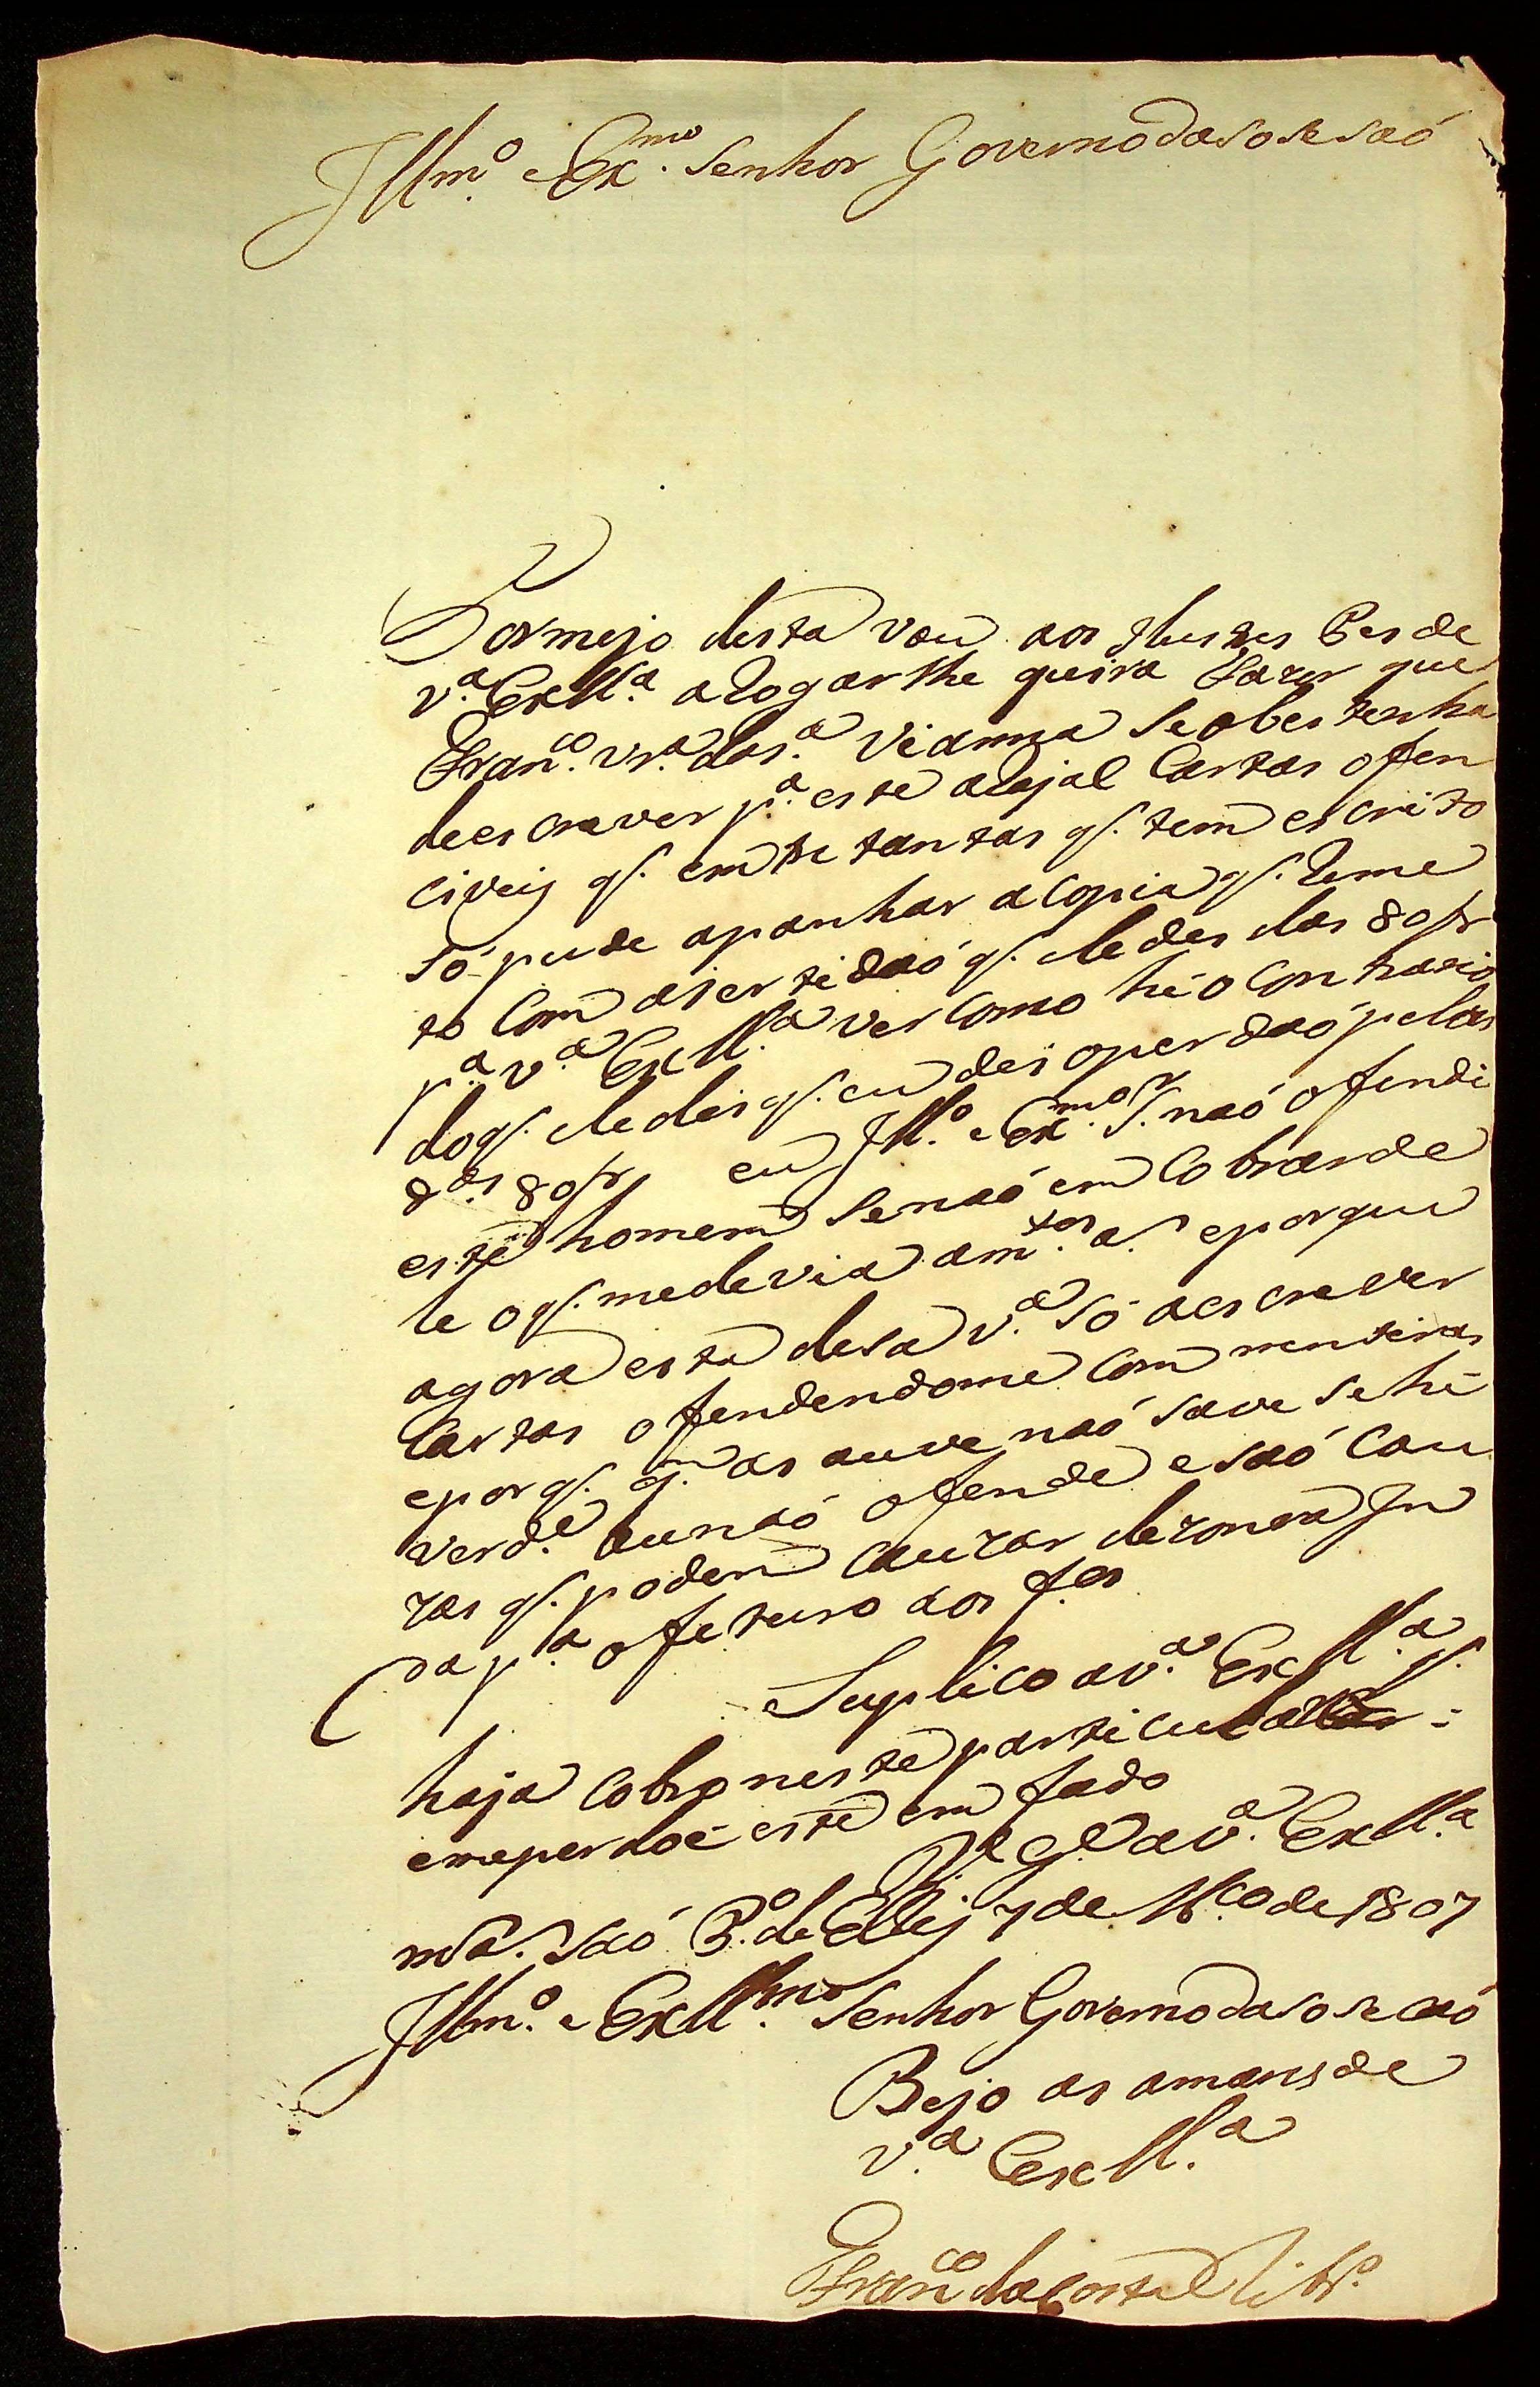 Illmº e Exmº. Senhor Governo da sosesaó
Por mejo desta vou aos Illustres Pes de
V.ª Exllª. a Rogar lhe queira Fazer que
Francº. Vrª. da sª. Vianna Se obes tenha
de escraver p.ª este arajal Cartas ofen
civeis q̃. em tre tantas q̃. tem escrito
só pude apanhar a copia q̃. Reme
to Com a sertidaó q̃. ele deu das 80/8
p.ª V.ª Exllª. ver Como hé o Contrario
do q̃. ele dis q̃. eu dei o perdaó pelas
d.as 80/8 eu Ill.º e Exmº. Sr. naó ofendi
este homem Senaó em Cobrar de
le o q̃. me devia a m.tos a.s e por que
agora esta desa V.ª só a escraver
Cartas ofendendome Com mentiras
e por q̃. q.m as ouve naó save se hé
verd.e ou naó ofende e saó Cau
zas q̃. podem Cauzar dezonra In
da p.ª o feturo aos f.os
Suplico a V.ª Exllª. q̃.
haja Cobro neste particular
eme perdoe este em fado
D.s G.e a V.ª Exllª.
m.s a.s Saó P.º de El Rej 7 de M.ço de 1807
Illmº. e Exllmº. Senhor Governo da sosecaó
Bejo as amans de
V.ª Exllª.
Franc.º da Costa